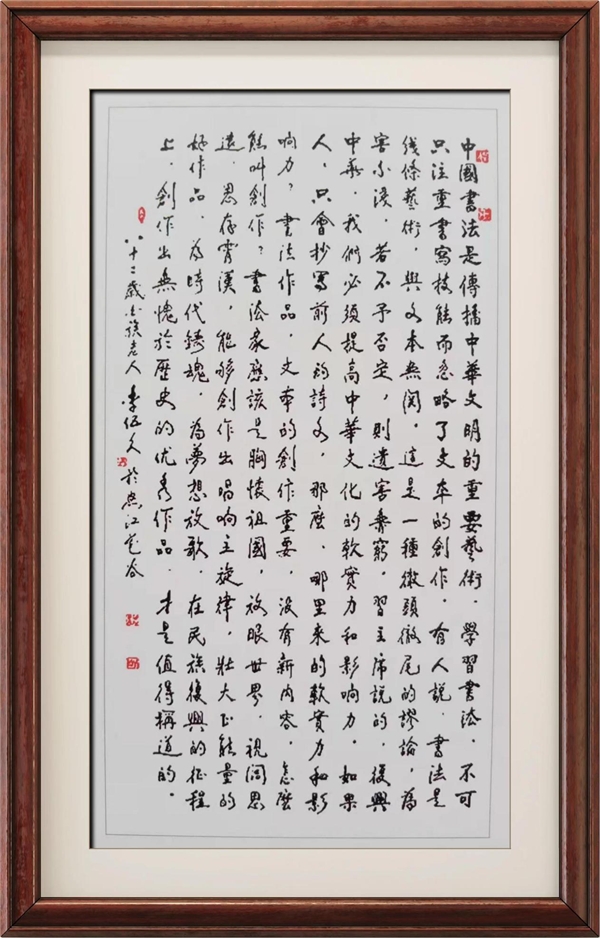 中國書法是傳播中華文明的重要藝術，學習書法，不可
只注重書寫技能而忽略了文本的創作，有人說，書法是
綫條藝術，與文本無関，這是一種徹頭徹尾的謬論，為
害不淺，若不予否定，則遺害無窮，習主席說的，復興
中華，我們必須提高中華文化的軟實力和影响力，如果
人，只會抄寫前人的詩文，那麽，哪里来的軟實力和影
响力？書法作品，文本的創作重要，没有新内容，怎麽
能叫創作？書法家應該是胸懷祖國，放眼世界，視闊思
遠，思存霄漢，能够創作出唱响主旋律，壯大正能量的
好作品，為時代鑄魂，為夢想放歌，在民族復興的征程
上，創作出無愧於歷史的优秀作品，才是值得稱道的。
八十二歲 族老人李伍久於 江花谷